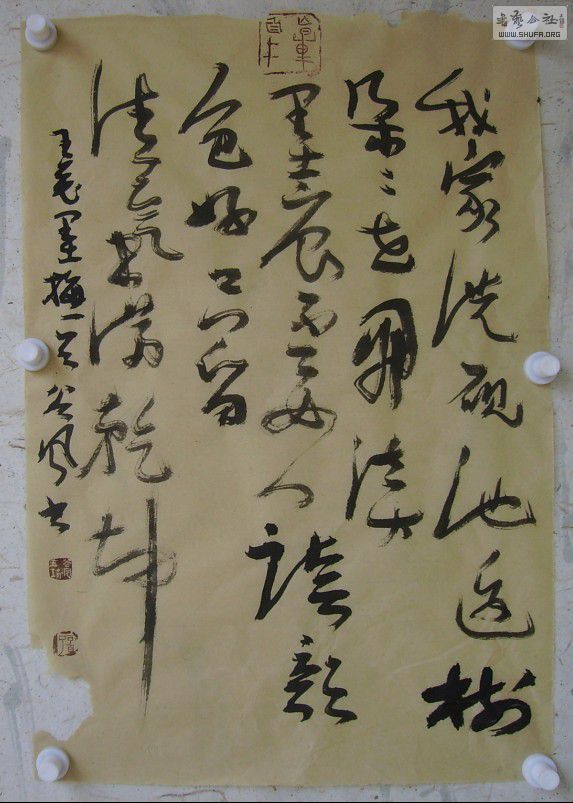 我家洗砚池边树
朵々花開淡
墨痕不要人誇颜
色好只留
清氣满乾坤
王冕墨梅一首 谷风书
書藝公社
WWW.SHUFA.ORG